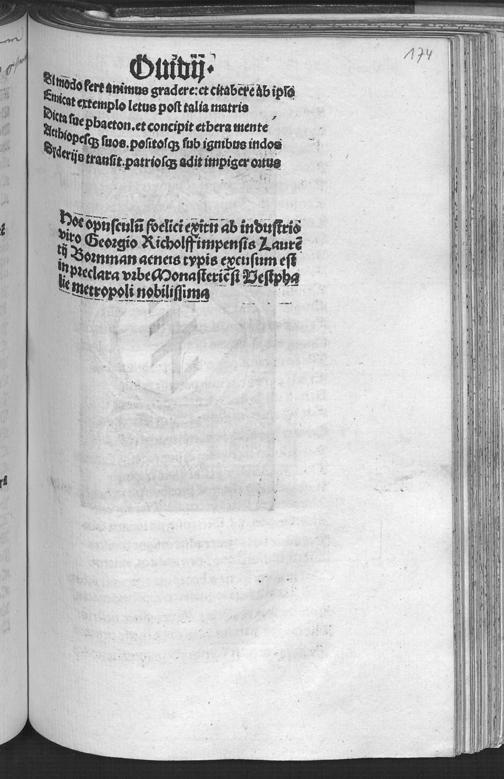 174
Ouidij.
Si modo fert animus gradere: et citabere ab ipso
Emicat extemplo letus post talia matris
Dicta sue phaeton. et concipit ethera mente
Aethiopesqꝫ suos. positosqꝫ sub ignibus indos
Siderijs transit. patriosqꝫ adit impiger ortus
Hoc opusculū foelici exitu ab industrio
viro Georgio Richolff impensis Laurē
tij Bornman aeneis typis excusum est
in preclara vrbe Monasteriēsi Vestpha
lie metropoli nobilissima